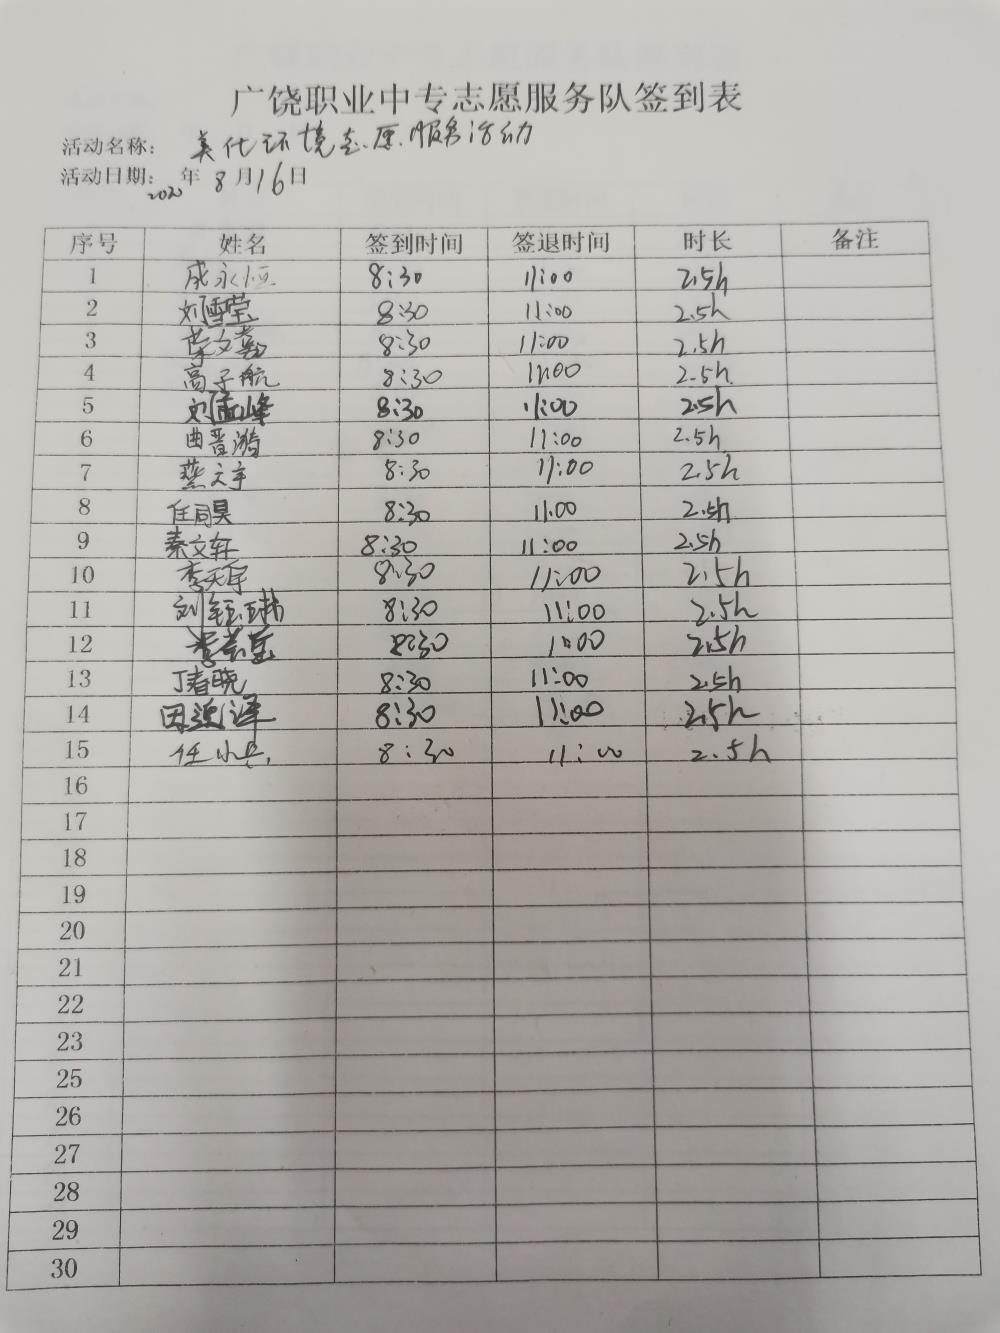 广饶职业中专志愿服务队签到表
活动名称: 美化环境志愿服务活动
活动日期: 2020 年 8 月 16 日
序号 姓名 签到时间 签退时间 时长 备注
1 成永恒 8:30 11:00 2.5h
2 刘雪莹 8:30 11:00 2.5h
3 荣文嘉 8:30 11:00 2.5h
4 高子航 8:30 11:00 2.5h
5 刘孟峰 8:30 11:00 2.5h
6 曲晋漪 8:30 11:00 2.5h
7 燕文宇 8:30 11:00 2.5h
8 任同昊 8:30 11:00 2.5h
9 秦文轩 8:30 11:00 2.5h
10 李天宇 8:30 11:00 2.5h
11 刘 8:30 11:00 2.5h
12 李 8:30 11:00 2.5h
13 丁春晓 8:30 11:00 2.5h
14 泽 8:30 11:00 2.5h
15 任小兵 8:30 11:00 2.5h
16
17
18
19
20
21
22
23
25
26
27
28
29
30